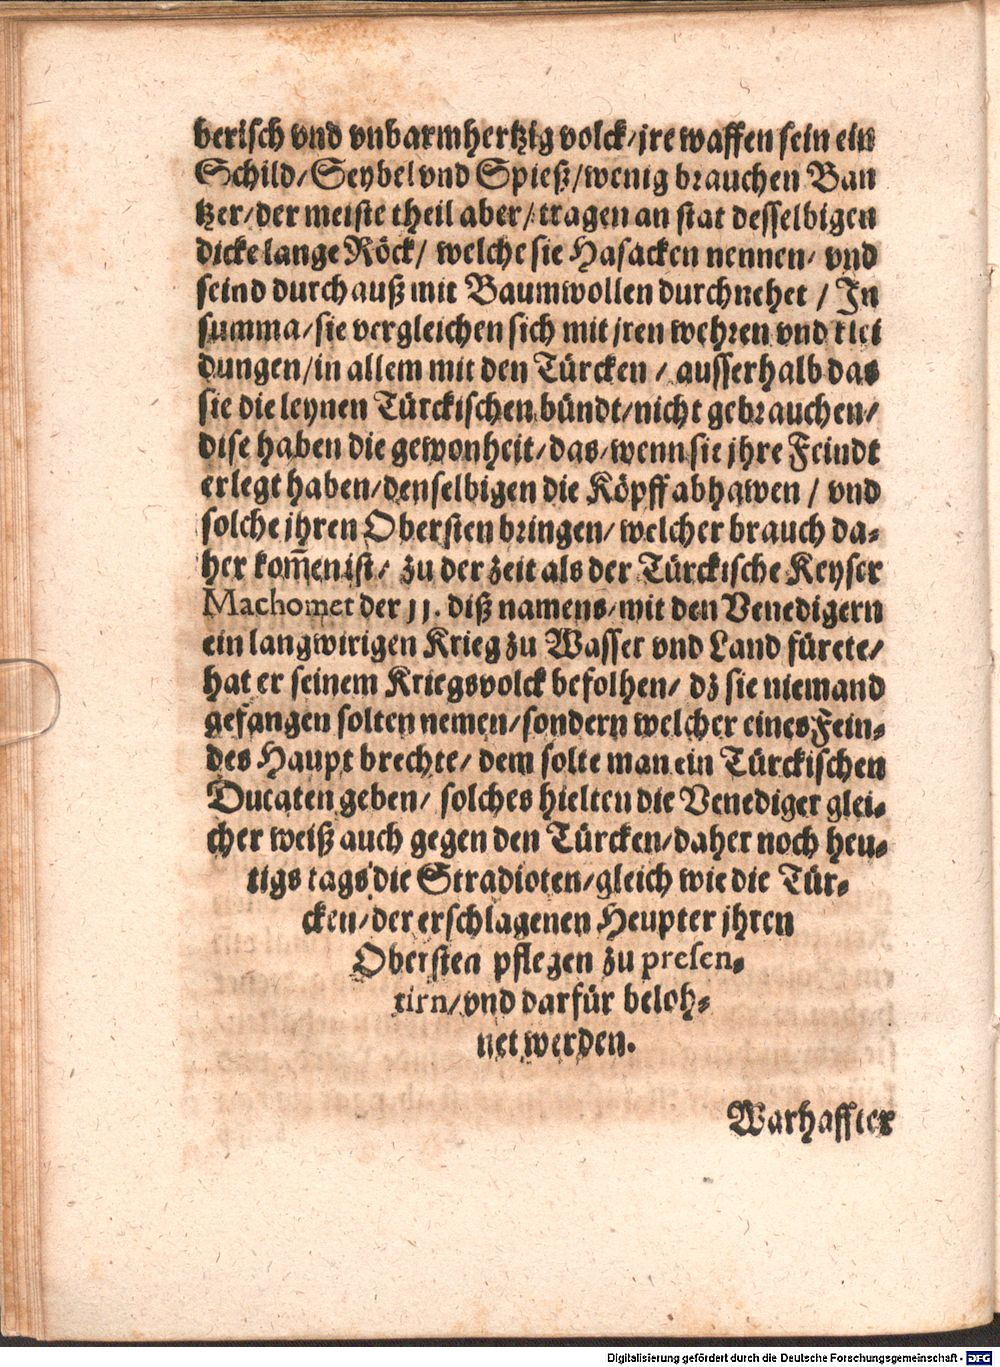 berisch vnd vnbarmhertzig volck/jre waffen sein ein
Schild/Seybel vnd Spieß/wenig brauchen Ban
tzer/der meiste theil aber/tragen an stat desselbigen
dicke lange Röck/ welche sie Hasacken nennen/ vnd
seind durch auß mit Baumwollen durchnehet / In
summa/sie vergleichen sich mit jren wehren vnd klei
dungen/in allem mit den Türcken / ausserhalb das
sie die leynen Türckischen bündt/nicht gebrauchen/
dise haben die gewonheit/das/wenn sie jhre Feindt
erlegt haben/denselbigen die Köpff abhawen / vnd
solche jhren Obersten bringen/ welcher brauch da-
her kom̃en ist/ zu der zeit als der Türckische Keyser
Machomet der 11. diß namens/mit den Venedigern
ein langwirigen Krieg zu Wasser vnd Land fürete/
hat er seinem Kriegsvolck befolhen/ dz sie niemand
gefangen solten nemen/sondern welcher eines Fein-
des Haupt brechte/ dem solte man ein Türckischen
Ducaten geben/ solches hielten die Venediger glei-
cher weiß auch gegen den Türcken/daher noch heu-
tigs tags die Stradioten/gleich wie die Tür-
cken/der erschlagenen Heupter jhren
Obersten pflegen zu presen-
tirn/vnd darfür beloh-
net werden.
Warhaffter
Digitalisierung gefördert durch die Deutsche Forschungsgemeinschaft - DFG